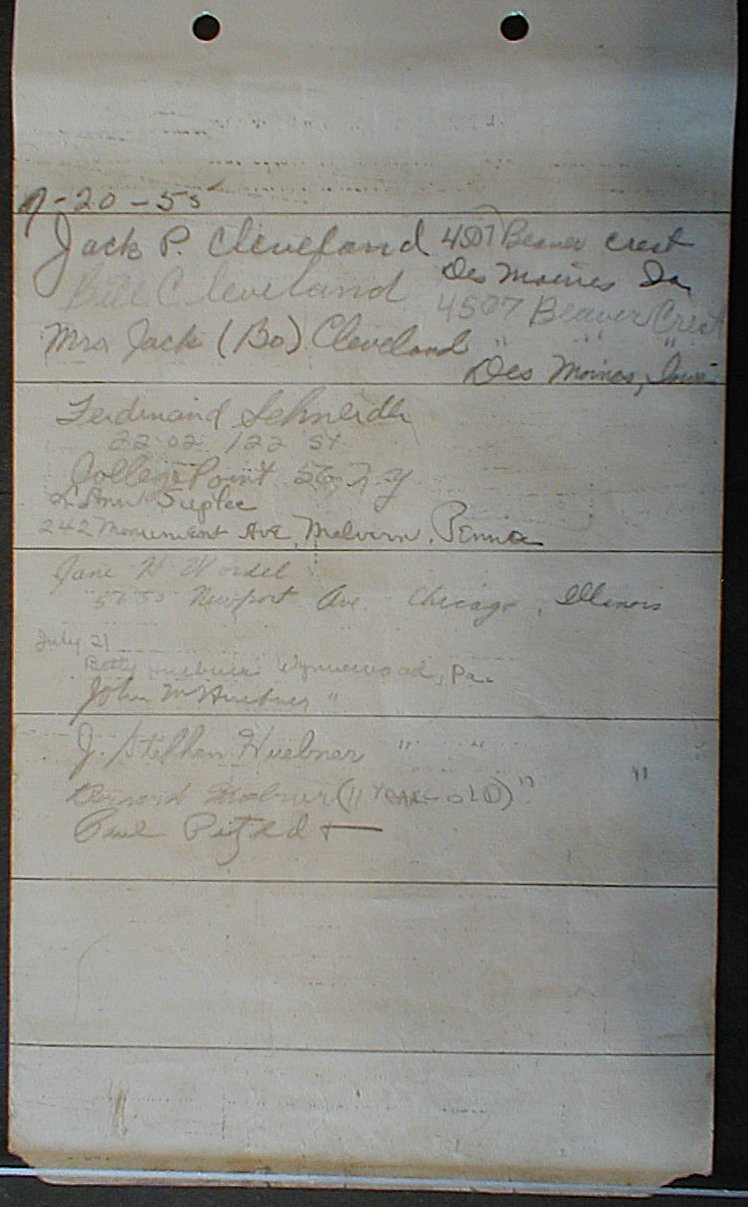 7-20-55
Jack P. Cleveland 4507 Beaver Crest
Des Moines Ia
Bill Cleveland 4507 Beaver Crest
Mrs Jack (Bo) Cleveland " " "
Des Moines, Iowa
Ferdinand Schneider
22-02 122 St
College Point 56, N.Y
Ann Suplee
242 Monument Ave, Malvern, Penna
Jane W. Wordel
5250 Newport Ave Chicago, Illinois
July 21
Betty Huebner Wynnewood, Pa.
John M Huebner "
J. Stephen Huebner " "
Huebner (11 YEARS OLD) " "
Paul Petzoldt